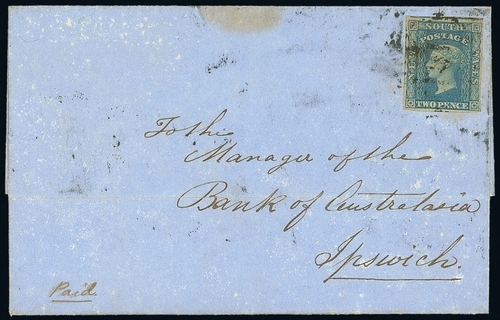 SOUTH
POSTAGE
WALES
TWO PENCE
To the
Manager of the
Bank of Australasia
Ipswich.
Paid